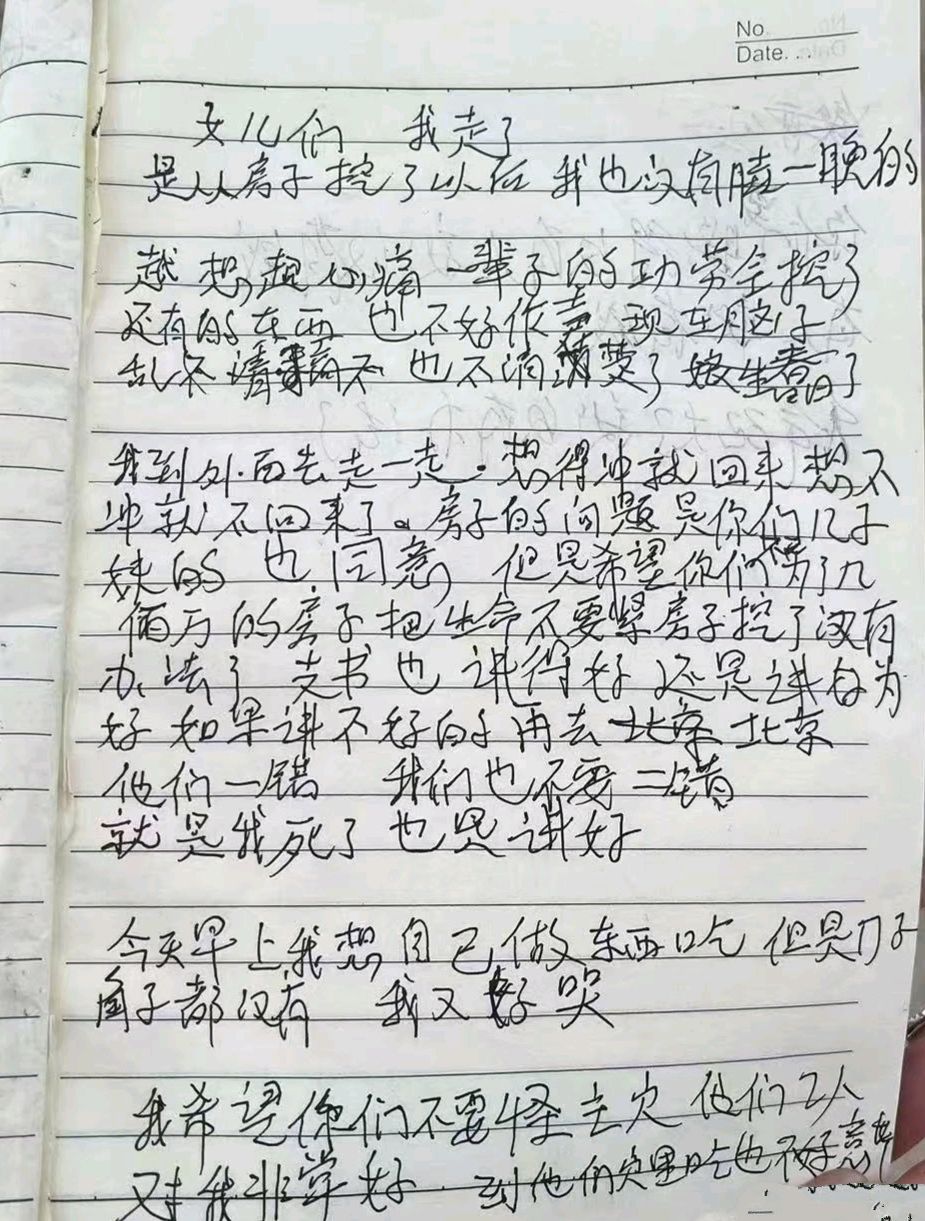 No.
Date. . .
女儿们 我走了
是从房子挖了以后 我也没有瞌一晚的
越想越心痛 一辈子的功劳全挖了
还有的东西 也不好作声 现在脑子
乱不清 不 也不消 了 娘生 了
我到外面去走一走.想得冲就回来想不
冲就不回来了。房子的问题是你们几子
妹的 也同意 但是希望你们为了几
俩万的房子把生命不要紧房子挖了没有
办法了 支书也讲得好 还是讲白为
好如果讲不好的再去北京北京
他们一错 我们也不要二错
就是我死了也是讲好
今天早上我想自己做东西吃 但是刀子
子都没有 我又好哭
我希望你们不要怪 他们2人
对我非常好 到他们 里吃也不好意